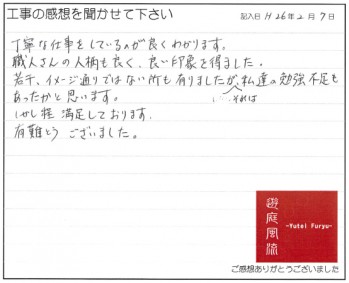 工事の感想を聞かせて下さい
記入日 H26年2月7日
丁寧な仕事をしているのが良くわかります。
職人さんの人柄も良く、良い印象を得ました。
若干、イメージ通りではない所も有りましたが、それは私達の勉強不足も
あったかと思います。
しかし程 満足しております。
有難とうございました。
遊庭風流
-Yutei Furyu-
ご感想ありがとうございました